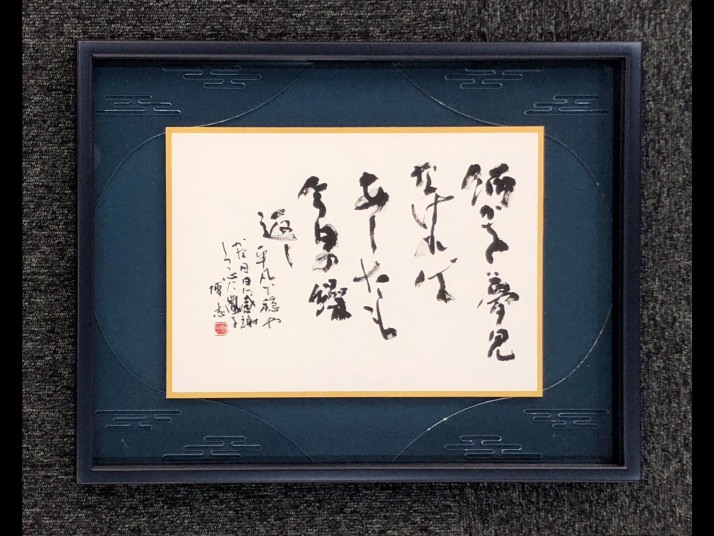 何かを夢見
なければ
あしたも
今日の繰
返し
平凡で穏や
かな日日に感謝
しつゝ心に嵐を
博志